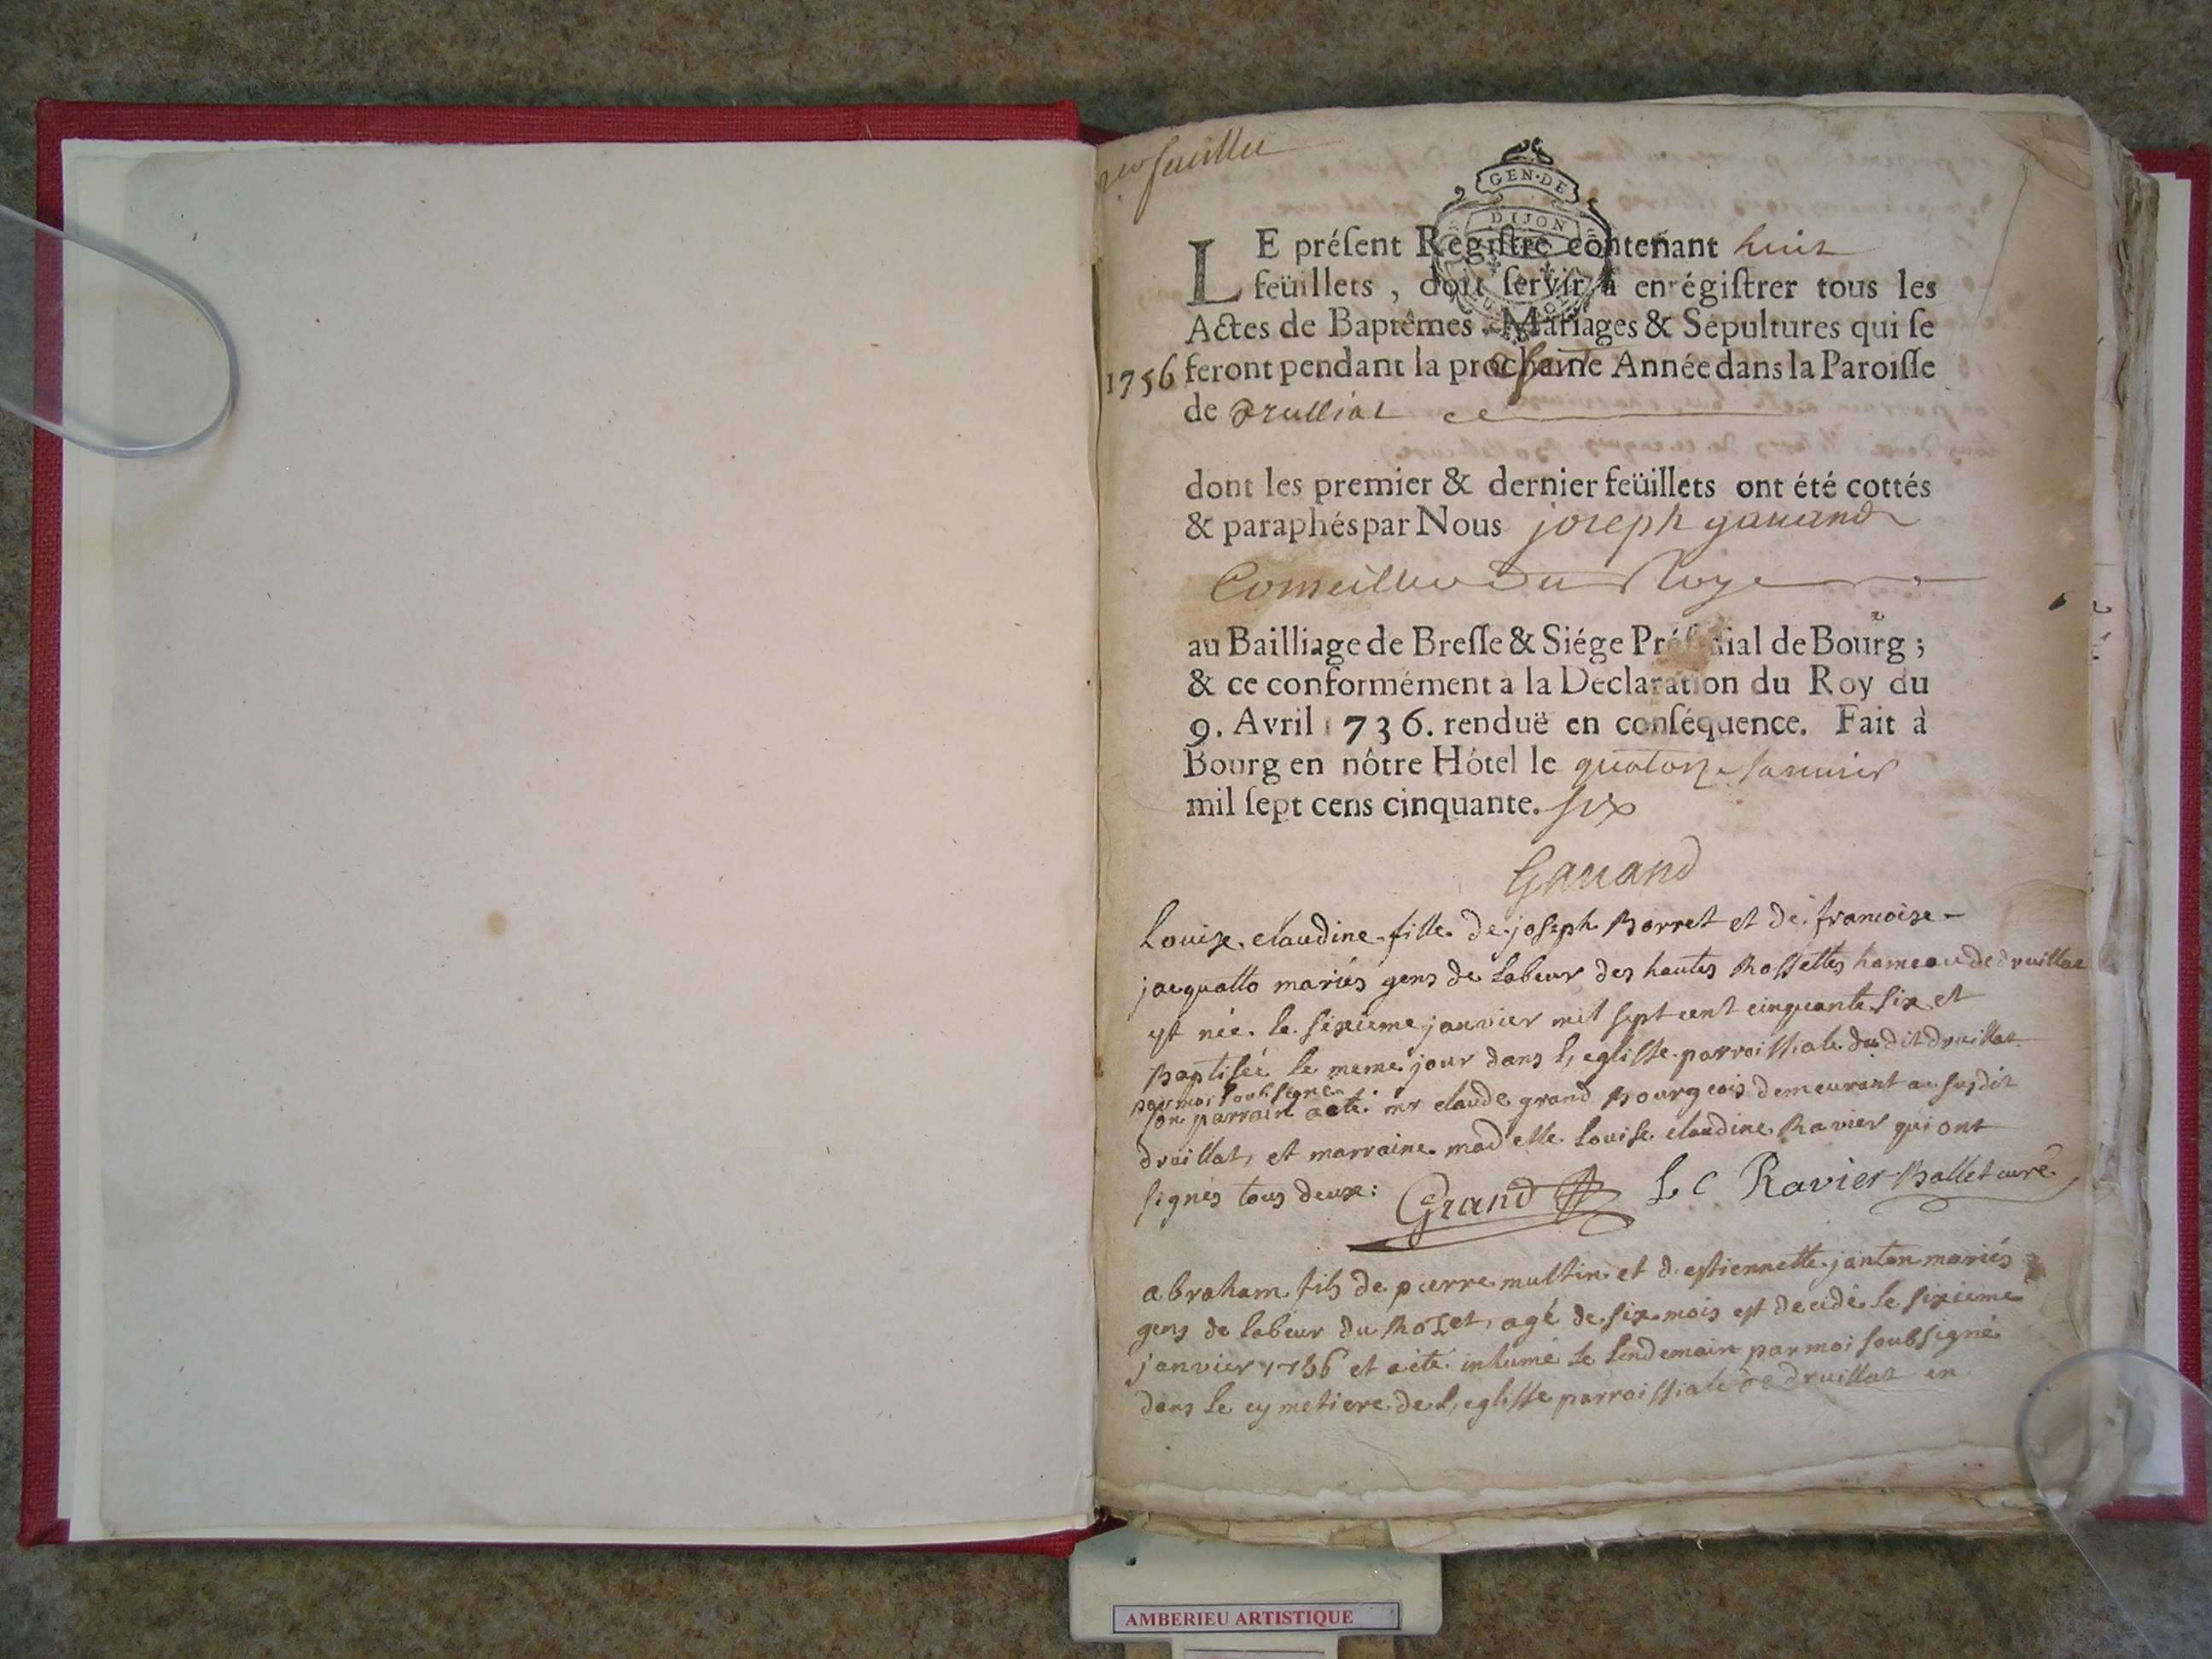 feuillet
GEN·DE
DIJON
LE préſent Regiſtre contenant huit
feüillets , doit ſervir à enrégiſtrer tous les
Actes de Baptêmes , Mariages & Sépultures qui ſe
1756 feront pendant la prochaine Année dans la Paroiſſe
de Druilliat
dont les premier & dernier feüillets ont été cottés
& paraphés par Nous joseph gauand
Conseiller Du Roy
au Bailliage de Breſſe & Siége Préſidial de Bourg ;
& ce conformément à la Déclaration du Roy du
9. Avril 1736. renduë en conſéquence. Fait à
Bourg en nôtre Hôtel le quatorze Januier
mil ſept cens cinquante. six
Gauand
Louize claudine fille de joseph Borret et de francoise
jacquatto mariés gens de labeur des hautes Rossettes hameau de druillat
est née le sixieme janvier mil sept cent cinquante six et
Baptisée le meme jour dans l, eglisse parroissiale du dit druillat
par moi soubsigné
son parrain a eté mr claude grand Bourgeois demeurant au susdit
druillat, et marraine mad elle Louise claudine Ravier qui ont
signés tous deux: Grand L C Ravier Ballet curé
abraham fils de pierre multin et d estiennette janton mariés
gens de labeur du Rozet, agé de six mois est decidé le sixieme
janvier 1756 et a eté inhumé le lendemain par moi soubsigné
dans le cymetiere de l, eglisse parroissiale de druillat en
AMBERIEU ARTISTIQUE